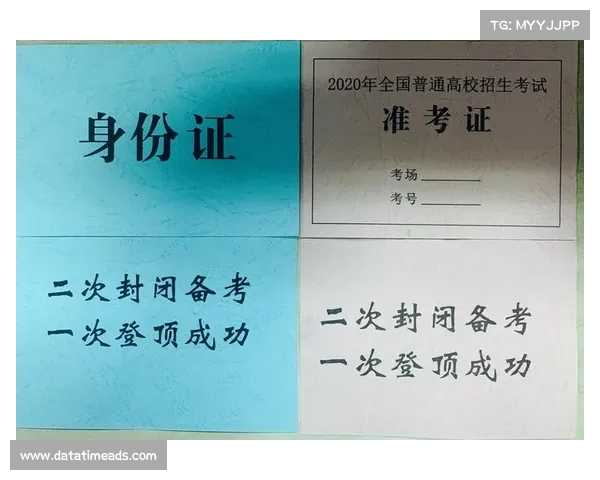 TG: MYYJJPP
身份证
2020年全国普通高校招生考试
准考证
考场
考号
二次封闭备考
一次登顶成功
二次封闭备考
一次登顶成功
www.datatimeads.com